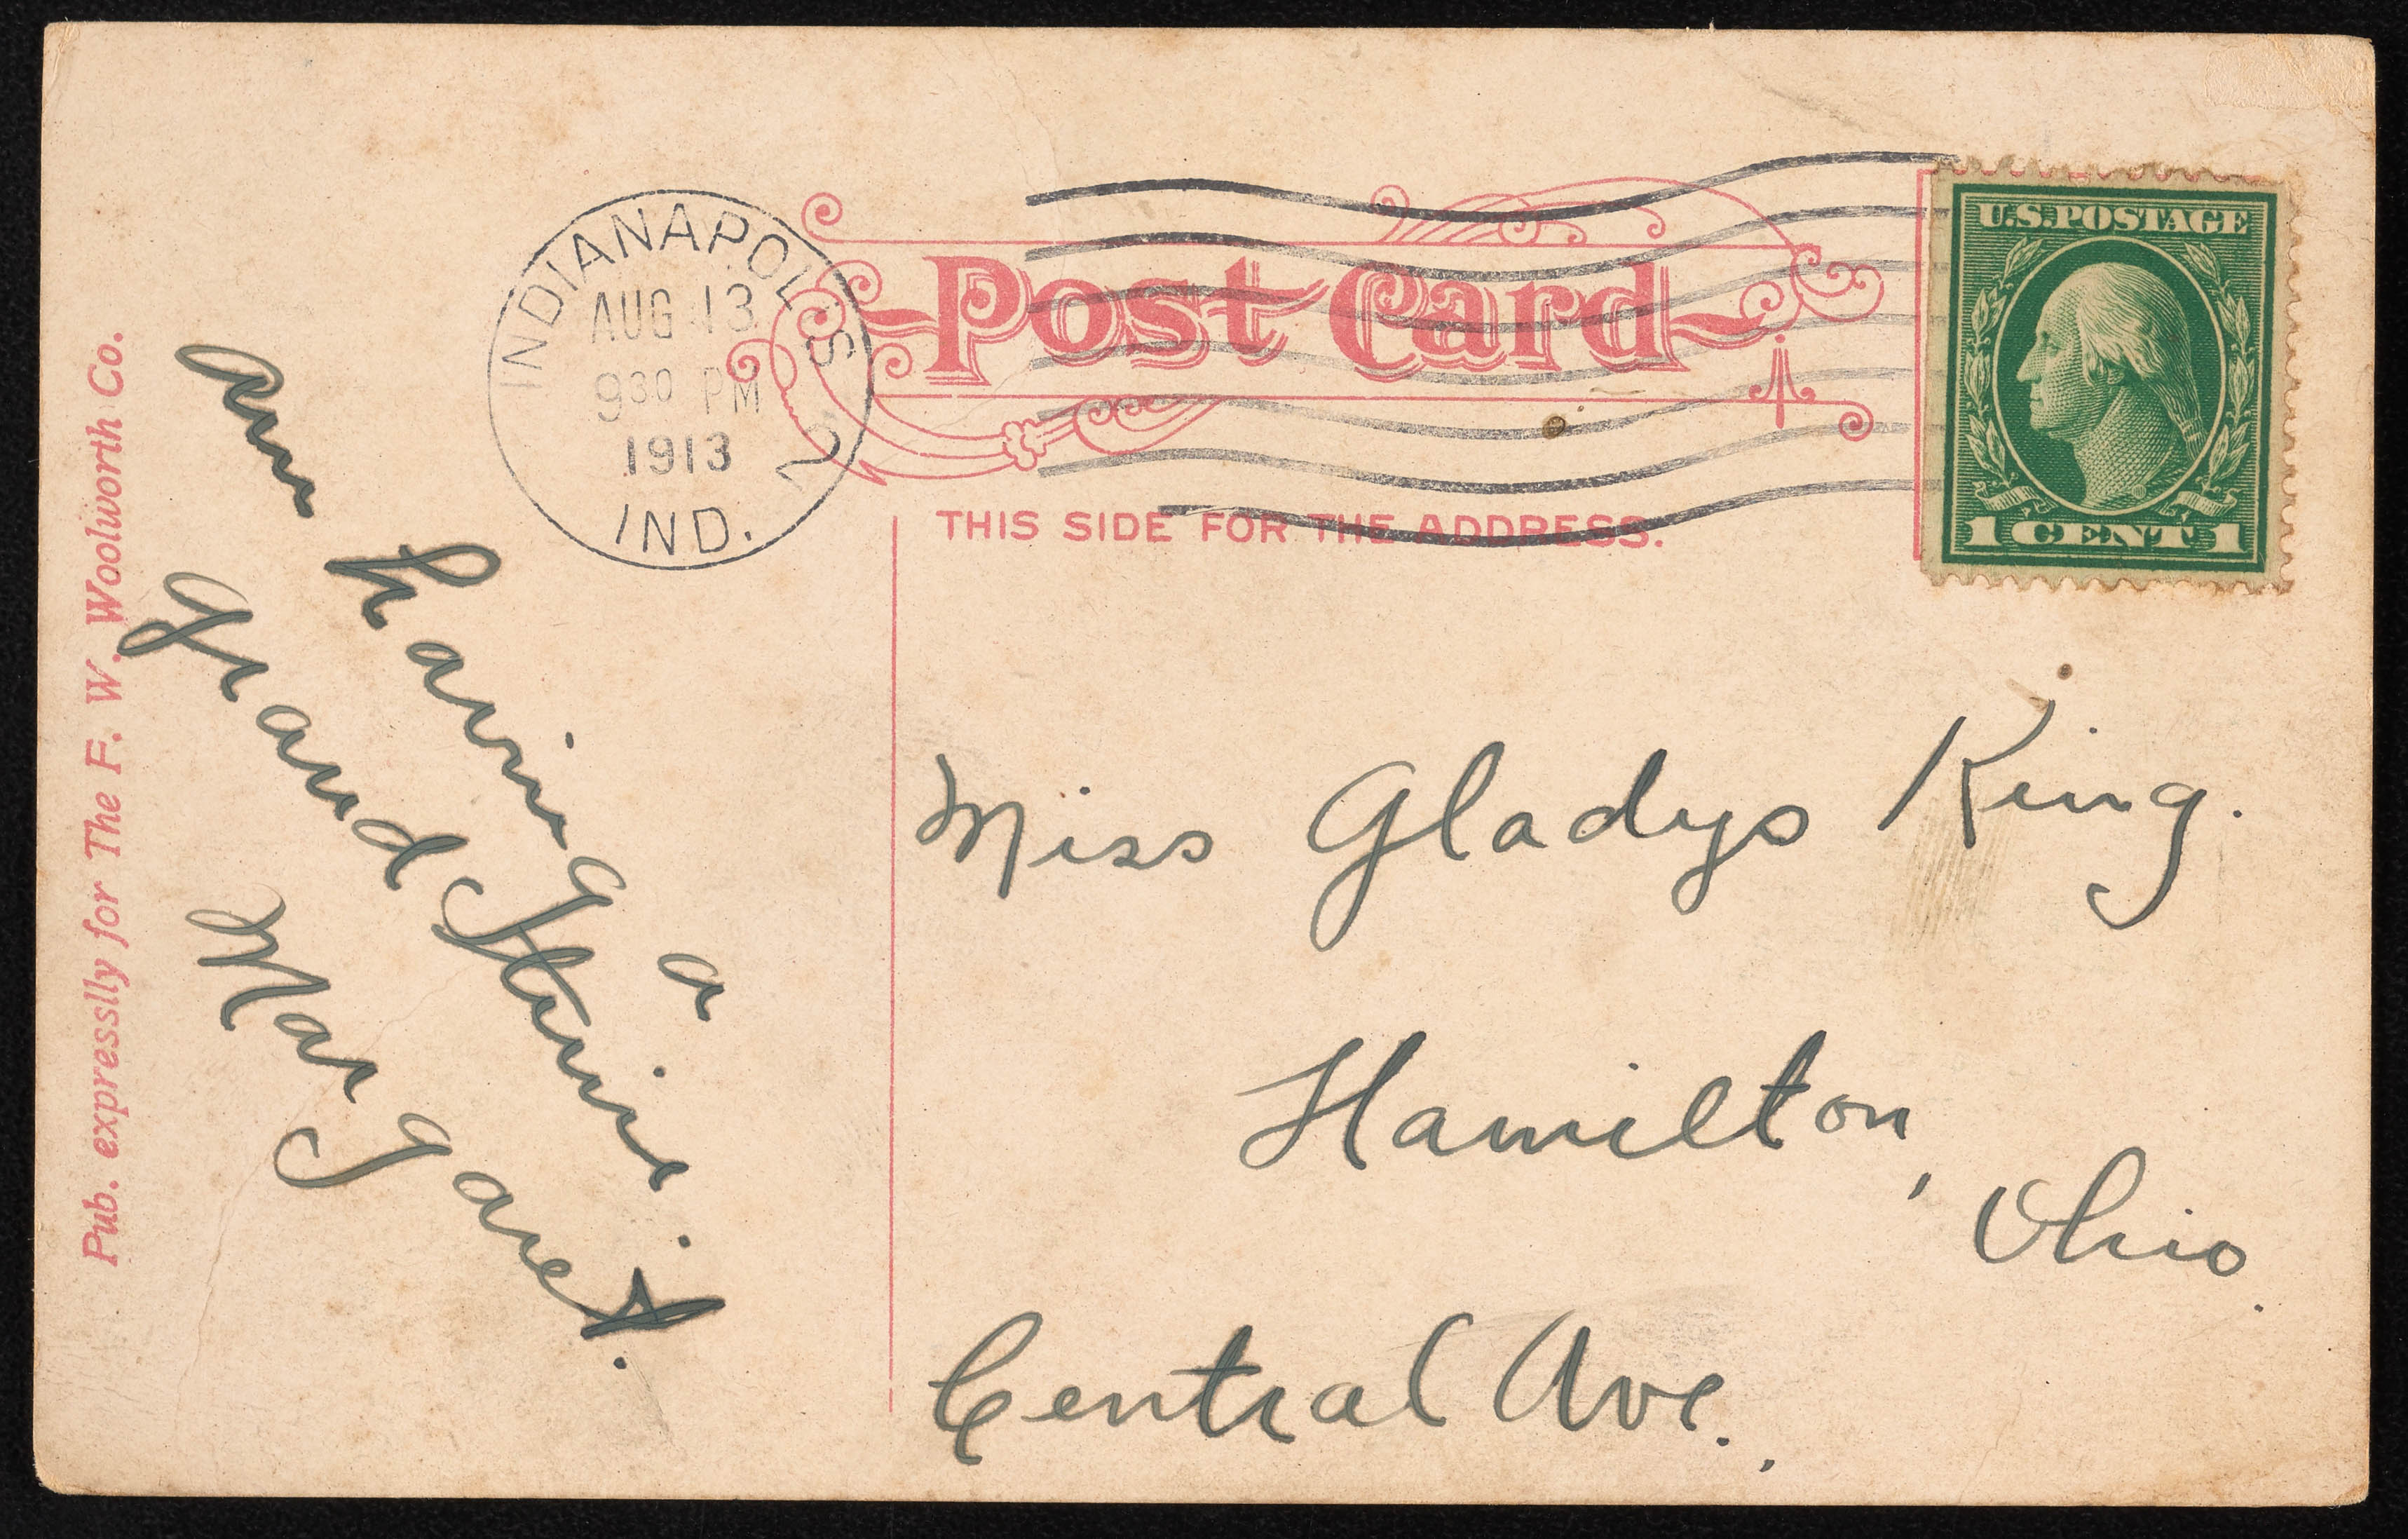 Pub. expresslly for The F. W. Woolworth Co.
INDIANAPOLIS
AUG 13
9 30 PM
1913
IND.
2
Post Card
THIS SIDE FOR THE ADDRESS.
U.S. POSTAGE
1 CENT 1
am having a
grand time.
Margaret.
Miss Gladys King.
Hamilton,
Ohio.
Central Ave.